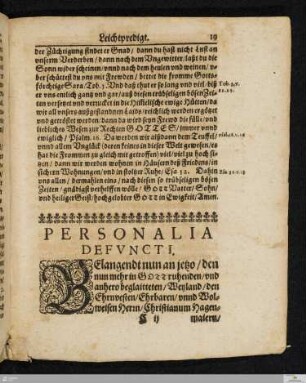 Leichtpredigt. 19
der Züchtigung findet er Gnad/ dann du hast nicht Lust an
unserm Verderben/ dann nach dem Ungewitter/ last du die
Sonn wider scheinen/ vnnd nach dem heulen vnd weinen/ v-
ber schüttest du vns mit Frewden/ bettet die fromme Gotts-
förchtige Sara/ Tob. 3. Vnd daß thut er so lang vnd viel/ biß
er vns entlich gantz vnd gar/ auß diesen
versetzet vnd verrucket in die Himmlische ewige Hütten/ da
wir all vnsers außgestandnem Laids/ reichlich werden ergötzt
vnd getröstet werden/ dann da wird seyn Frewd die fülle/ vnd
liebliches Wesen zur Rechten GOTTES/ immer vnnd
ewiglich/ Psalm. 16. Da werden wir alßdann dem Teuffel/
vnnd allem Vnglück (deren keines in dieser Welt gewesen/ es
hat die Frommen zu gleich mit getroffen) viel/ viel zu hoch si-
tzen/ dann wir werden wohnen in Häusern deß Friedens/ in
sichern Wohnungen/ vnd in stoltzer Ruhe/ Esa 32. Dahin
vns allen/ dermahlen eins/ nach diesen so trübseligen bösen
Zeiten/ gnädigst verhelffen wölle/ GOtt Vatter/ Sohn/
vnd heiliger Geist/ hochgelobter GOtt in Ewigkeit/ Amen.
Tob. 3. v.
22. 23.
PERSONALIA
DEFVNCTI.
BElangendt nun an jetzo/ den
nun mehr in GOtt ruhenden/ vnd
anhero beglaitteten/ Weyland/ den
Ehrnvesten/ Ehrbaren/ vnnd Wol-
weisen Herrn/ Christianum Hagen-
C ij
malern/